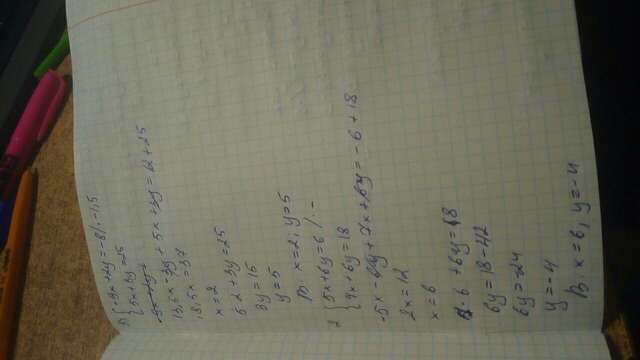 {-9x+2y=-8/·-1,5
{5x+3y=25
13,5x-3y+5x+3y=12+25
18,5x=37
x=2
5·2+3y=25
3y=15
y=5
В. x=2, y=5
2 {5x+6y=6 /·-
{7x+6y=18
-5x-6y+7x+6y=-6+18
2x=12
x=6
·6+6y=18
6y=18-42
6y=-24
y=-4
В. x=6, y=-4